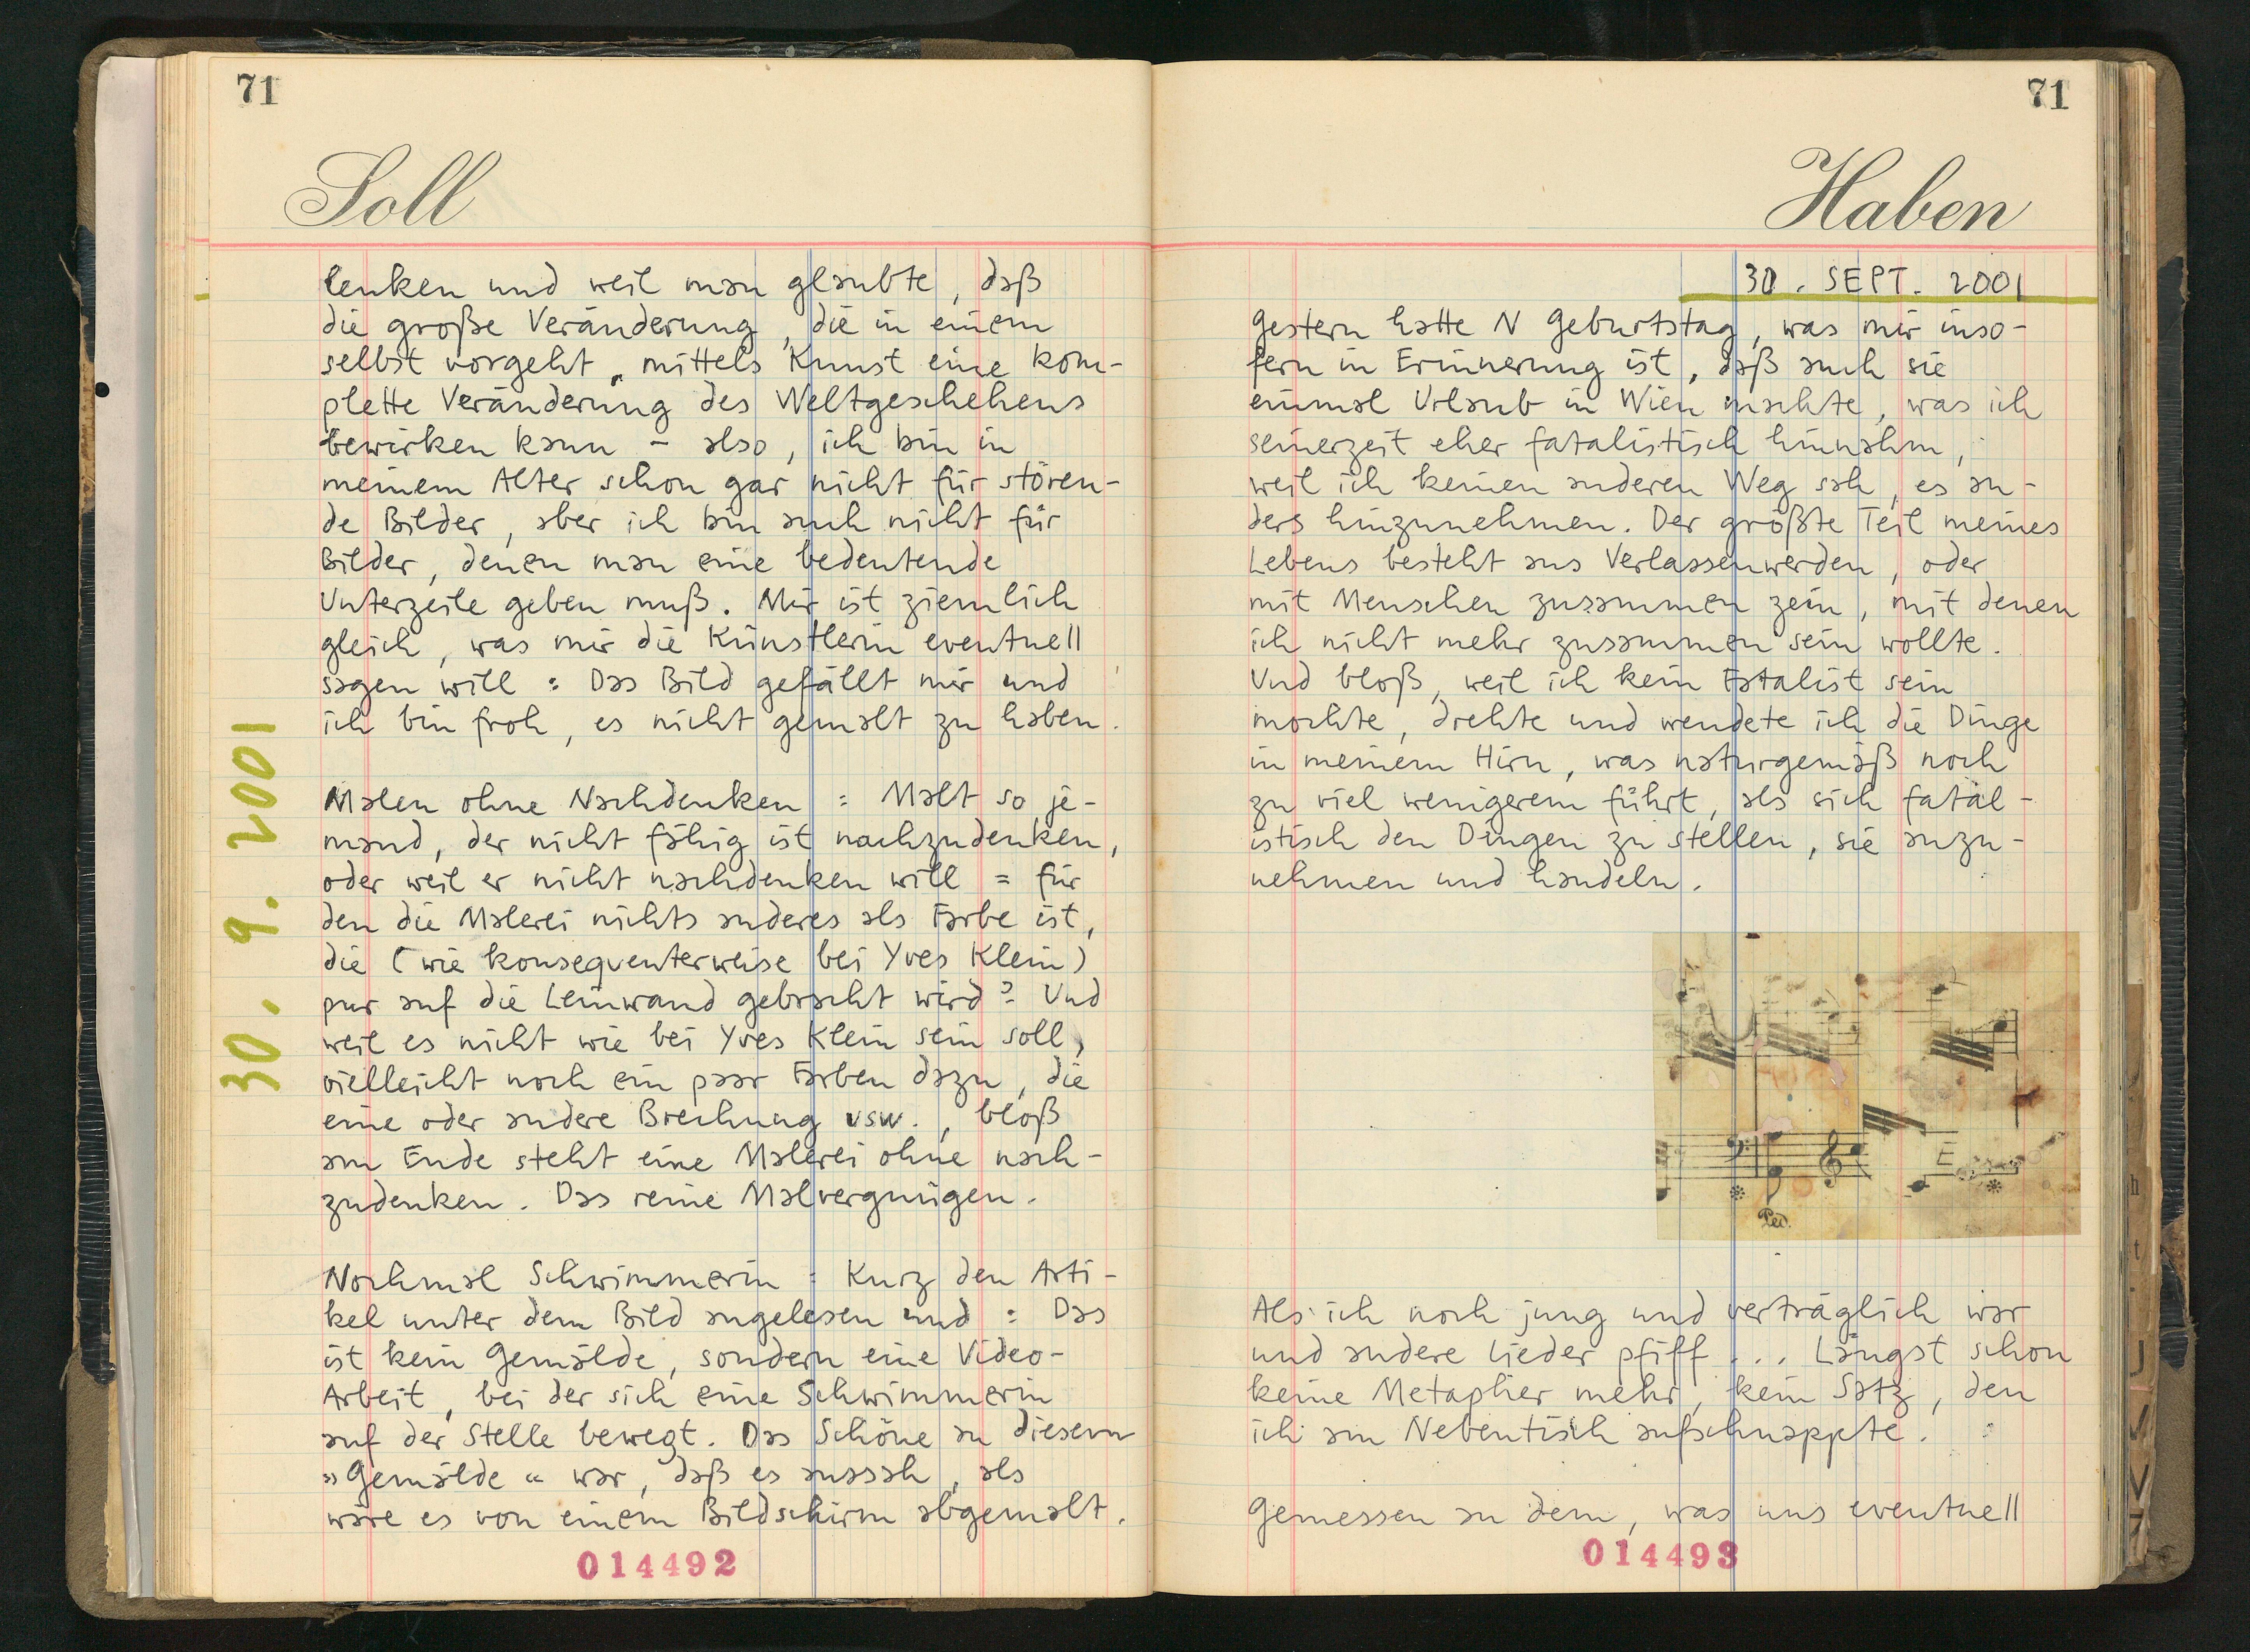 71
Soll
lenken und weil man glaubte, daß
die große Veränderung, die in einem
selbst vorgeht, mittels Kunst eine kom-
plette Veränderung des Weltgeschehens
bewirken kann - also, ich bin in
meinem Alter schon gar nicht für stören-
de Bilder, aber ich bin auch nicht für
Bilder, denen man eine bedeutende
Unterzeile geben muß. Mir ist ziemlich
gleich, was mir die Künstlerin eventuell
sagen will: Das Bild gefällt mir und
ich bin froh, es nicht gemalt zu haben.
30. 9. 2001
Malen ohne Nachdenken: Malt so je-
mand, der nicht fähig ist nachzudenken,
oder weil er nicht nachdenken will = für
den die Malerei nichts anderes als Farbe ist,
die (wie konsequenterweise bei Yves Klein)
pur auf die Leinwand gebracht wird? Und
weil es nicht wie bei Yves Klein sein soll,
vielleicht noch ein paar Farben dazu, die
eine oder andere Brechung usw., bloß
am Ende steht eine Malerei ohne nach-
zudenken. Das reine Malvergnügen.
Nochmal Schwimmerin: Kurz den Arti-
kel unter dem Bild angelesen und: Das
ist kein Gemälde, sondern eine Video-
Arbeit, bei der sich eine Schwimmerin
auf der Stelle bewegt. Das Schöne an diesem
»Gemälde« war, daß es aussah, als
wäre es von einem Bildschirm abgemalt.
014492
71
Haben
30. SEPT. 2001
Gestern hatte N Geburtstag, was mir inso-
fern in Erinnerung ist, daß auch sie
einmal Urlaub in Wien machte, was ich
seinerzeit eher fatalistisch hinnahm,
weil ich keinen anderen Weg sah, es an-
ders hinzunehmen. Der größte Teil meines
Lebens besteht aus Verlassenwerden, oder
mit Menschen zusammen zein, mit denen
ich nicht mehr zusammen sein wollte.
Und bloß, weil ich kein Fatalist sein
mochte, drehte und wendete ich die Dinge
in meinem Hirn, was naturgemäß noch
zu viel wenigerem führt, als sich fatal-
istisch den Dingen zu stellen, sie anzu-
nehmen und handeln.
E
Ped.
Als ich noch jung und verträglich war
und andere Lieder pfiff ... Längst schon
keine Metapher mehr, kein Satz, den
ich am Nebentisch aufschnappte.
Gemessen an dem, was uns eventuell
014493